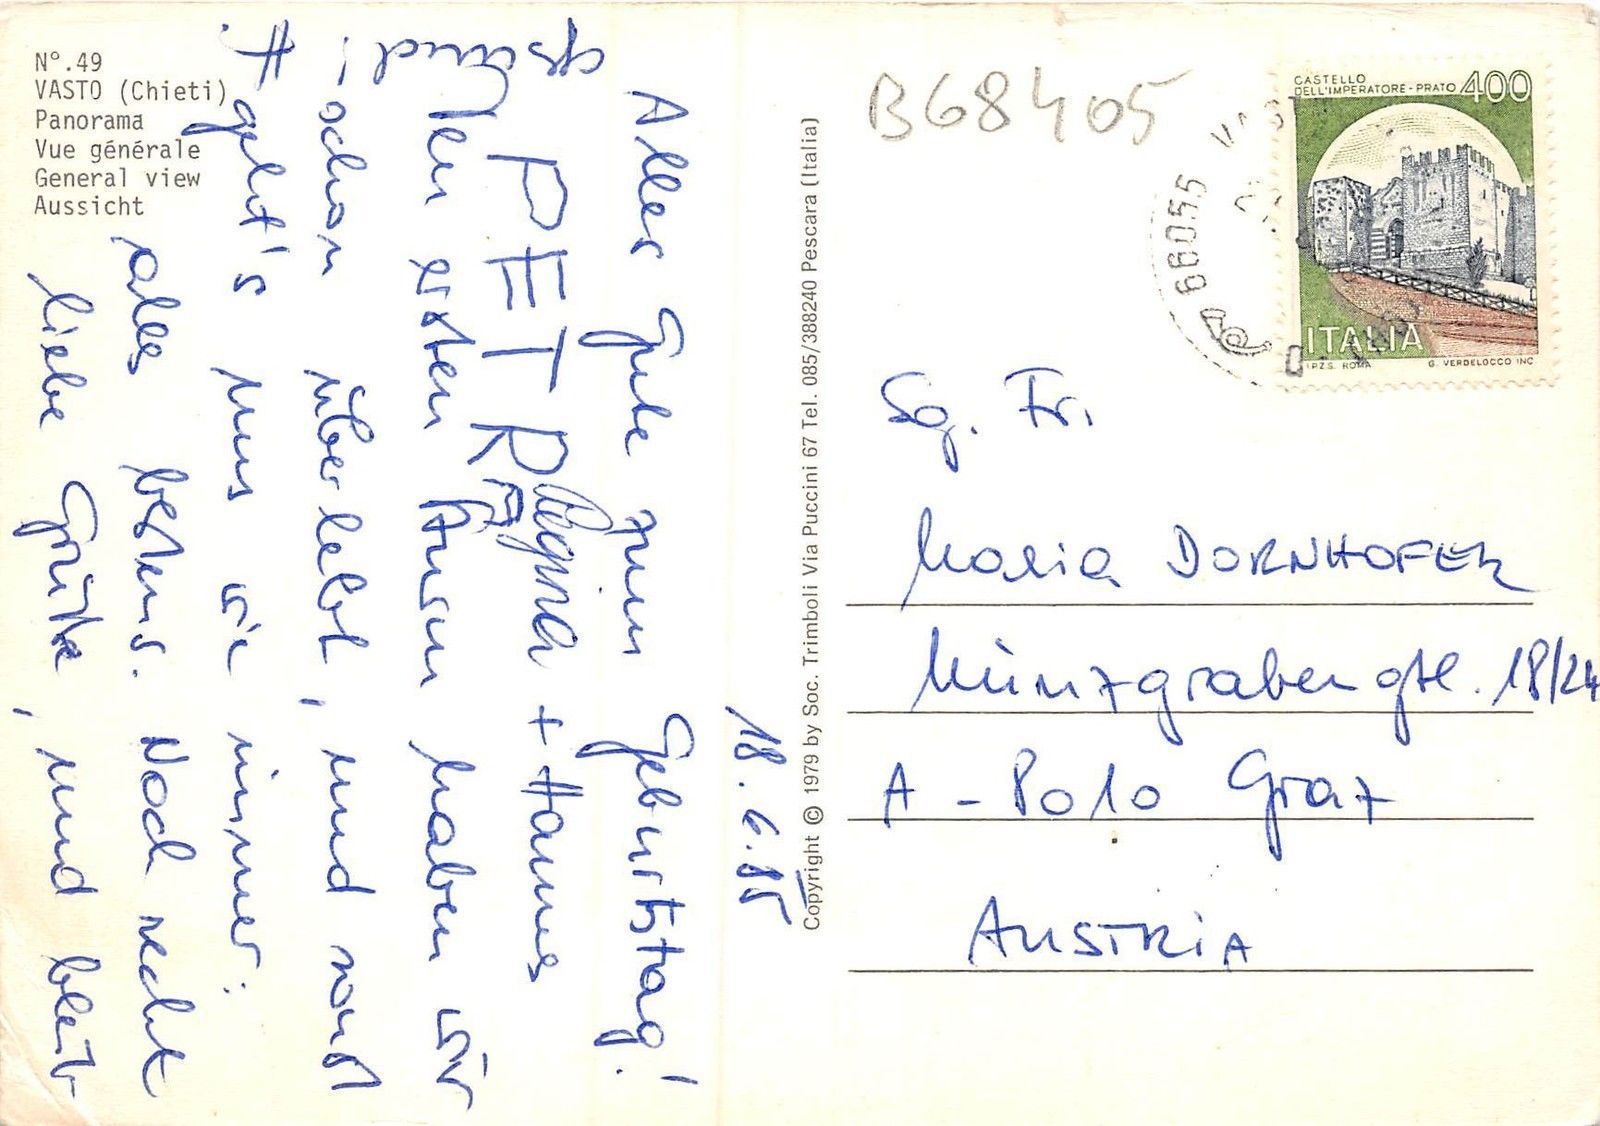 N°.49
VASTO (Chieti)
Panorama
Vue générale
General view
Aussicht
18.6.85
Alles Gute zum Geburtstag!
Den ersten Ausm haben wir
schon überlebt, und sonst
geht's uns wie immer:
alles bestens. Noch recht
liebe Grüße, und bleib
gsund!
PETRA
Regina + Hannes
Copyright © 1979 by Soc. Trimboli Via Puccini 67 Tel. 085/388240 Pescara (Italia)
B68405
CASTELLO
DELL'IMPERATORE - PRATO 400
ITALIA
I.P.Z.S. ROMA G. VERDELOCCO INC.
66055
Sg. Fr.
Maria DORNHOFER
Münzgrabengtl. 18/24
A - 8010 Graz
AUSTRIA